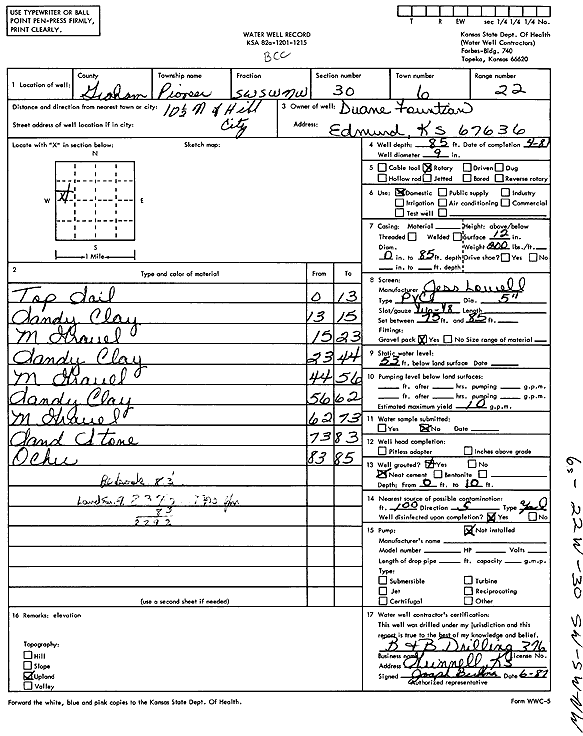 USE TYPEWRITER OR BALL
POINT PEN-PRESS FIRMLY,
PRINT CLEARLY.
T R EW sec 1/4 1/4 1/4 No.
WATER WELL RECORD
KSA 82a-1201-1215
BCC
Kansas State Dept. Of Health
(Water Well Contractors)
Forbes-Bldg. 740
Topeka, Kansas 66620
1 Location of well: County Graham Township name Pioneer Fraction SW SW NW Section number 30 Town number 6 Range number 22
Distance and direction from nearest town or city: 10½ N of Hill City
Street address of well location if in city:
3 Owner of well: Duane Fountian
Address: Edmund, KS 67636
Locate with "X" in section below:
Sketch map:
N
W X E
S
1 Mile
4 Well depth: 85 ft. Date of completion 4-81
Well diameter 9 in.
5 Cable tool X Rotary Driven Dug
Hollow rod Jetted Bored Reverse rotary
6 Use: X Domestic Public supply Industry
Irrigation Air conditioning Commercial
Test well
7 Casing: Material Height: above/below
Threaded Welded Surface 12 in.
Diam. Weight 200 lbs./ft.
0 in. to 85 ft. depth Drive shoe? Yes No
in. to ft. depth
2 Type and color of material From To
Top Soil 0 13
Sandy Clay 13 15
M Gravel 15 23
Sandy Clay 23 44
M Gravel 44 56
Sandy Clay 56 62
M Gravel 62 73
Sand Stone 73 83
Ochre 83 85
Bedrock 83'
83
2292
(use a second sheet if needed)
8 Screen:
Manufacturer Jess Lowell
Type PVC Dia. 5"
Slot/gauze Length
Set between 75 ft. and 85 ft.
Fittings:
Gravel pack X Yes No Size range of material
9 Static water level:
53 ft. below land surface Date
10 Pumping level below land surfaces:
ft. after hrs. pumping g.p.m.
ft. after hrs. pumping g.p.m.
Estimated maximum yield 10 g.p.m.
11 Water sample submitted:
Yes X No Date
12 Well head completion:
Pitless adapter Inches above grade
13 Well grouted? X Yes No
X Neat cement Bentonite
Depth: From 0 ft. to 10 ft.
14 Nearest source of possible contamination:
ft. 100 Direction S Type
Well disinfected upon completion? X Yes No
15 Pump: X Not installed
Manufacturer's name
Model number HP Volts
Length of drop pipe ft. capacity g.m.p.
Type:
Submersible Turbine
Jet Reciprocating
Certrifugal Other
16 Remarks: elevation
Topography:
Hill
Slope
X Upland
Valley
17 Water well contractor's certification:
This well was drilled under my jurisdiction and this
report is true to the best of my knowledge and belief.
B & B Drilling 376
Business name License No.
Address Grinnell, KS
Signed Date 6-81
Authorized representative
Forward the white, blue and pink copies to the Kansas State Dept. Of Health.
Form WWC-5
6s-22W-30 SW-SW-NW